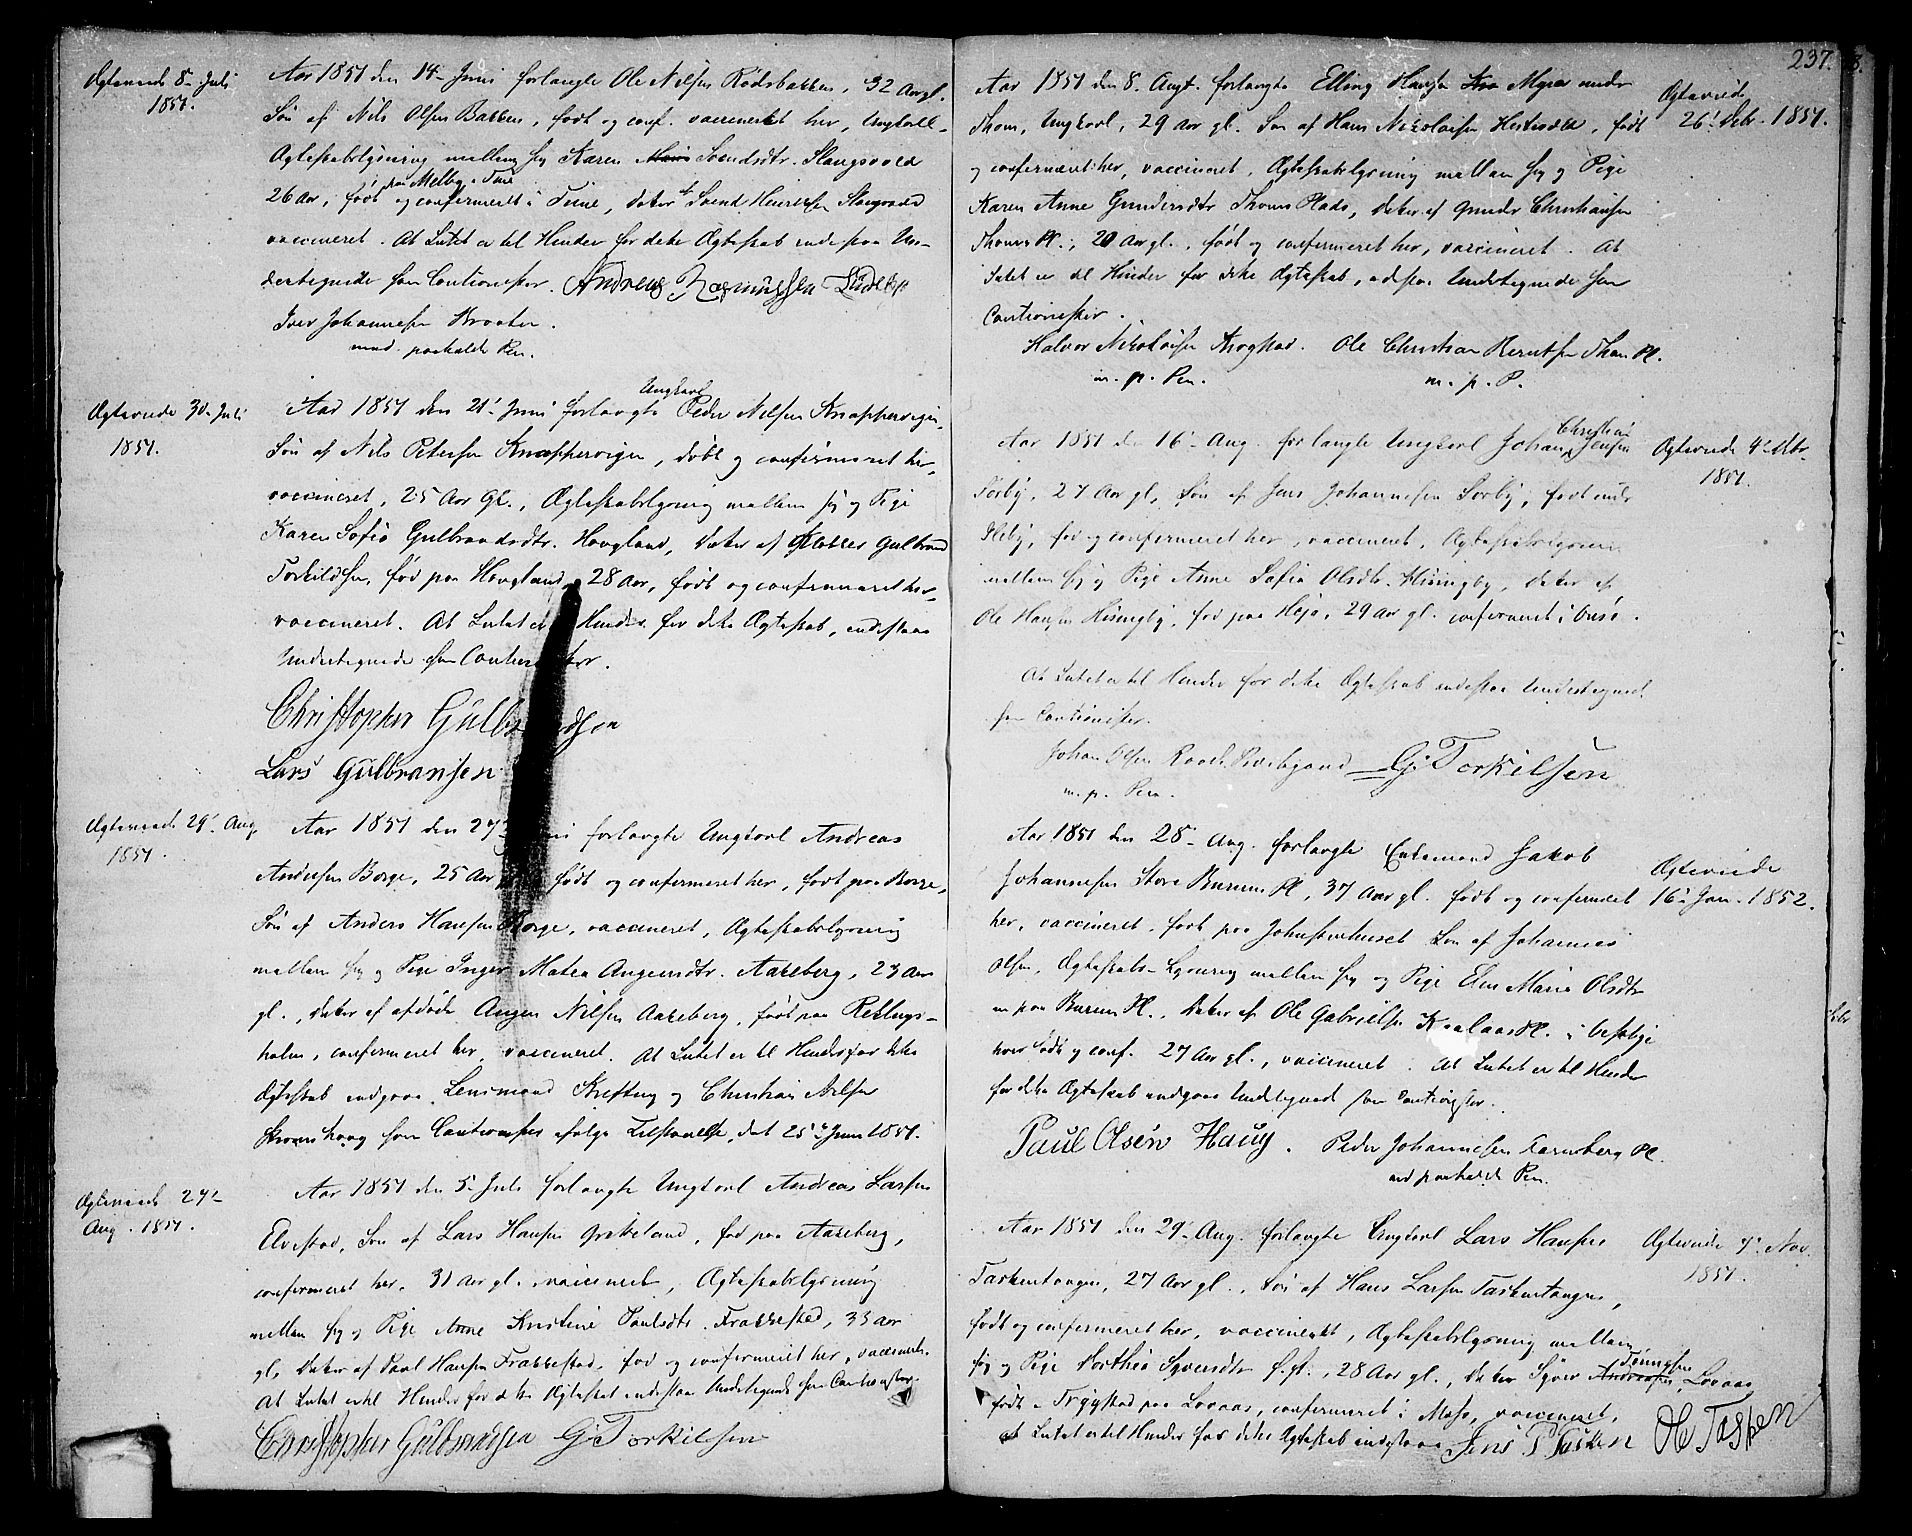 Ægteviede 8de Juli
1851.
Aar 1851 den 14de Juni forlangte Ole Nilsen Rødsbakken, 32 Aar gl.
Søn af Nils Olsen Bakken, født og conf. vaccineret her, Ungkarl
Ægteskabslysning mellem sig Karen Svendsdtr. Slangsvold
fra Melby i Tune
26 Aar, født og confirmeret i Tune, Datter af Svend Slangsvold
vaccineret. At Intet er til Hinder for dette Ægteskab indestaa Un-
dertegnede som Cautionister. Andreas Rasmussen
Iver Johannesen Kraaken.
med paaholdt Pen.
Ægteviede 30te Juli
1851.
Ungkarl
Aar 1851 den 21de Juni forlangte Peder Nilsen Knappervigen,
Søn af Nils Petersen Knappervigen, døbt og confirmeret her,
vaccineret, 25 Aar Gl., Ægteskabslysning mellem sig og Pige
Karen Sofia Gulbrandsdtr. Hovgland, Datter af Gulbrand
Torkildsen, fød paa Hovgland, 28 Aar, født og confirmeret her,
vaccineret. At Intet er Hinder for dette Ægteskab, indestaa
Undertegnede som
Christopher
Lars Gulbransen
Ægteviede 29de Aug.
1851.
Aar 1851 den 27 forlangte Ungkarl Andreas
Andersen Borge, 25 Aar født og confirmeret her, født paa Borge,
Søn af Anders Hansen Borge, vaccineret, Ægteskabslysning
mellem sig og Pige Inger Matea Augensdtr. Aaseberg, 23 Aar
gl., Datter af afdøde Augen Nilsen Aaseberg, født paa
holm, confirmeret her, vaccineret. At Intet er til Hinder for dette
Ægteskab indgaaes Lensmand Krefting og Christian Nilsen
som Cautionister ifølge Tilstaaelse, dat 25de Juni 1851.
Ægteviede 27de
Aug. 1851.
Aar 1851 den 5te Juli forlangte Ungkarl Andreas Larsen
Elvestad, Søn af Lars Hansen Grikeland, fød paa Aaseberg,
confirmeret her, 31 Aar gl. vaccineret, Ægteskabslysning
mellem sig og Pige Anne Kristine Paulsdtr. Frakkestad, 33 Aar
gl., Datter af Paul Hansen Frakkestad, fød og confirmeret her, vaccineret.
At Intet er til Hinder for dette Ægteskab indestaa Undertegnede som Cautionister.
Christopher Gulbrandsen G. Torkilsen
237.
Aar 1851 den 8. Augt. forlangte Elling Hansen Myra under
Thom, Ungkarl, 29 Aar gl. Søn af Hans Nikolaisen, født
og confirmeret her, vaccineret, Ægteskabslysning mellem sig og Pige
Karen Anne Gundersdtr Thoms Plads, Datter af Gunder Christiansen
Thoms Pl., 20 Aar gl., født og confirmeret her, vaccineret. At
Intet er til Hinder for dette Ægteskab, indestaa Undertegnede som
Cautionister.
Halvor Nikolaisen Ole Christian Berntsen Thom Pl.
m. p. Pen. m. p. P.
Ægteviede
26de Debr. 1851.
Christian
Aar 1851 den 16de Aug. forlangte Ungkarl Johan Jensen
Sørby, 27 Aar gl, Søn af Jens Johannesen Sørby, født under
fød og confirmeret her, vaccineret, Ægteskabslysning
mellem sig og Pige Anne Sofia Olsdtr. Huseby, Datter af
Ole Hansen fød paa 29 Aar gl. confirmeret i Onsø.
At Intet er til Hinder for dette Ægteskab indestaa Undertegnede
som Cautionister.
Johan Olsen G. Torkilsen
m. p. Pen.
Ægteviede 4de Debr
1851.
Aar 1851 den 28de Aug. forlangte Enkemand Jakob
Johannesen Store Burum Pl, 37 Aar gl. født og confirmeret
her, vaccineret, født paa Johnsenhuset Søn af Johannes
Olsen, Ægteskabs-Lysning mellem sig og Pige Elen Maria Olsdtr
paa Burum Pl., Datter af Ole Gabrielsen Kaalaas Pl. i Vestby
hvor født og conf. 27 Aar gl., vaccineret. At Intet er til Hinder
for dette Ægteskab indgaaes Undertegnede som Cautionister.
Paul Olsen Haug. Peder Johannesen Pl.
med paaholdt Pen.
Ægteviede
16de Jan. 1852.
Aar 1851 den 29de Aug. forlangte Ungkarl Lars Hansen
Taskentangen, 27 Aar gl., Søn af Hans Larsen Taskentangen,
født og confirmeret her, vaccineret, Ægteskabslysning mellem
sig og Pige Dorthea Syversdtr s. st., 28 Aar gl., Datter Syver Tønnesen Lovaas
født i Trygstad paa Lovaas, confirmeret i Moss, vaccineret,
at Intet er til Hinder for dette Ægteskab indestaa Jens P Tasken
Ægteviede 7de Nov.
1851.